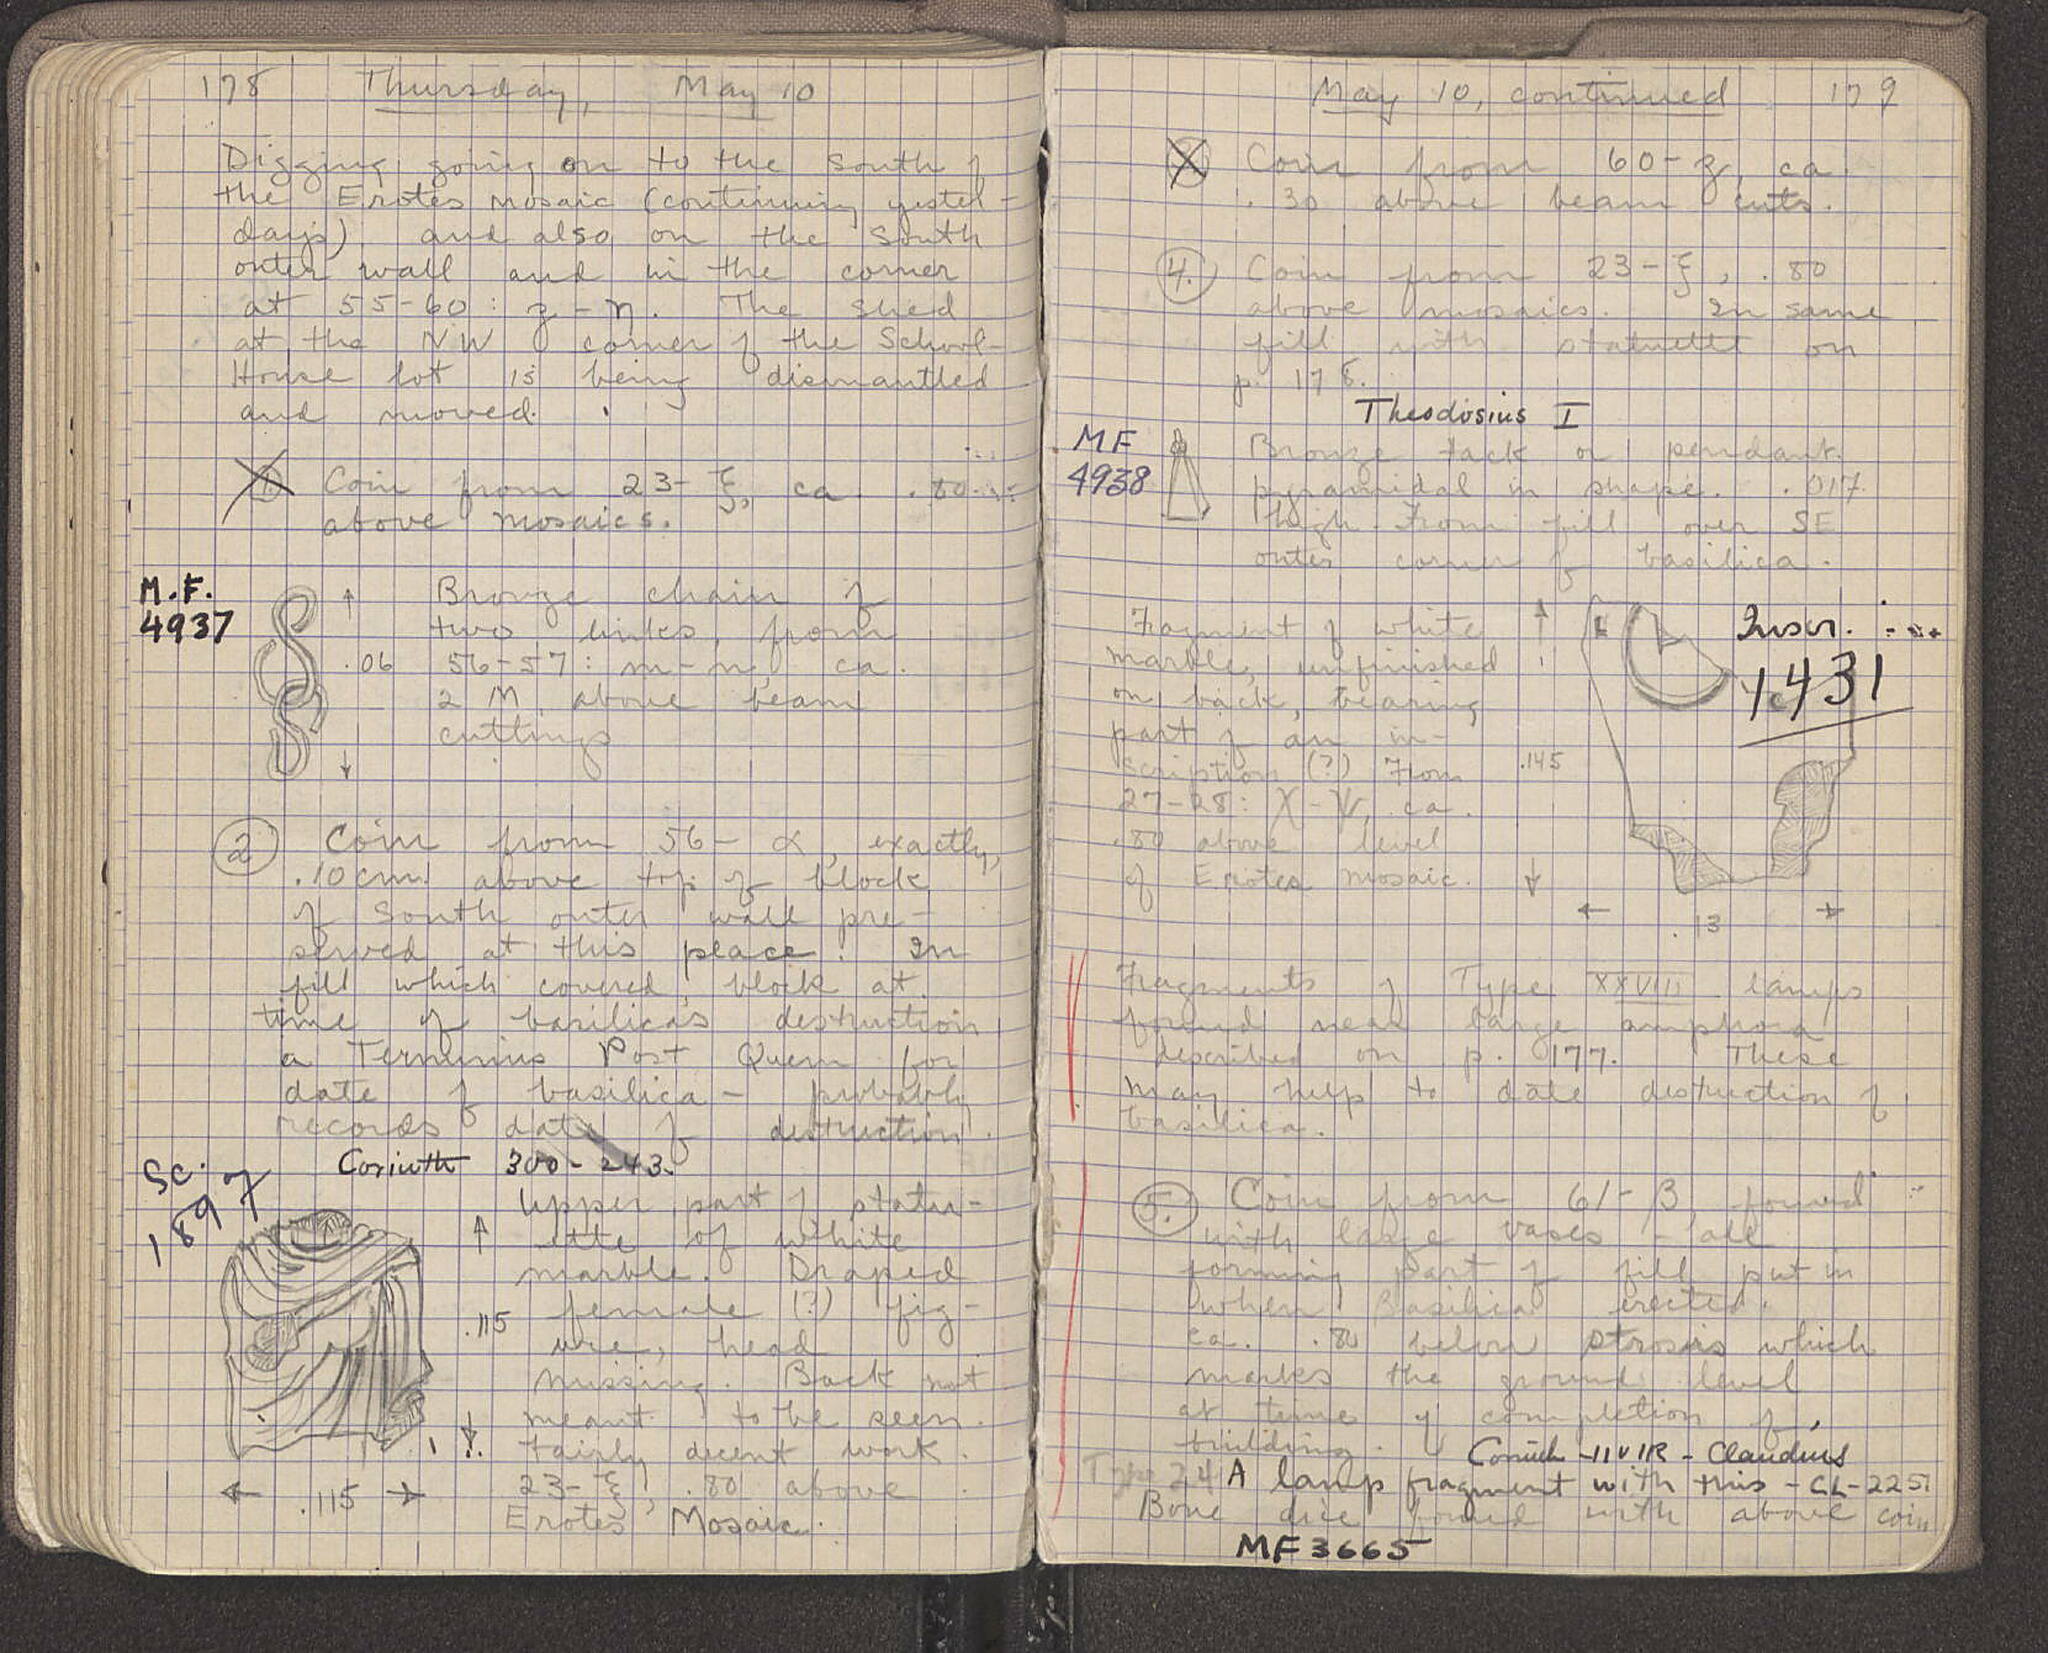 178 Thursday, May 10
Digging going on to the South of
the Erotes mosaic (continuing yester-
day's) and also on the South
outer wall and in the corner
at 55-60: z-η. The shed
at the NW corner of the School-
House lot is being dismantled
and moved.
1. Coin from 23-ξ, ca. .80
above mosaics.
M.F.
4937
Bronze chain of
two links, from
56-57: m-n, ca.
.06
2 M. above beam
cuttings
2 Coin from 56-α, exactly,
.10 cm. above top of block
of South outer wall pre-
served at this place. In
fill which covered block at
time of basilica's destruction
a Terminus Post Quem for
date of basilica - probably
records date of destruction.
Corinth 300-243.
SC. of
1897
Upper part of statu-
ette of white
marble. Draped
female (?) fig-
.115
ure, head
missing. Back not
meant to be seen.
Fairly decent work.
23-ξ, .80 above
.115
Erotes Mosaic.
May 10, continued 179
Coin from 60-z, ca.
.30 above beam cuts.
4. Coin from 23-ξ, .80
above mosaics. In same
fill with statuette on
p. 178.
Theodosius I
MF
4938
Bronze tack or pendant.
pyramidal in shape. .017
high. From fill over SE
outer corner of basilica.
Fragment of white
marble, unfinished
on back, bearing
part of an in-
scription (?) From
27-28: χ-ψ, ca.
.80 above level
of Erotes mosaic.
Inscr.
1431
.145
.13
Fragments of Type XXVIII lamps
found near large amphora
described on p. 177. These
may help to date destruction of
basilica.
5. Coin from 61-β, found
with large vases - all
forming part of fill put in
when Basilica erected.
ca. .80 below strosis which
marks the ground level
at time of completion of
building.
Corinth - IIVIR - Claudius
Type 24 A lamp fragment with this - CL-2251
Bone dice found with above coin
MF 3665